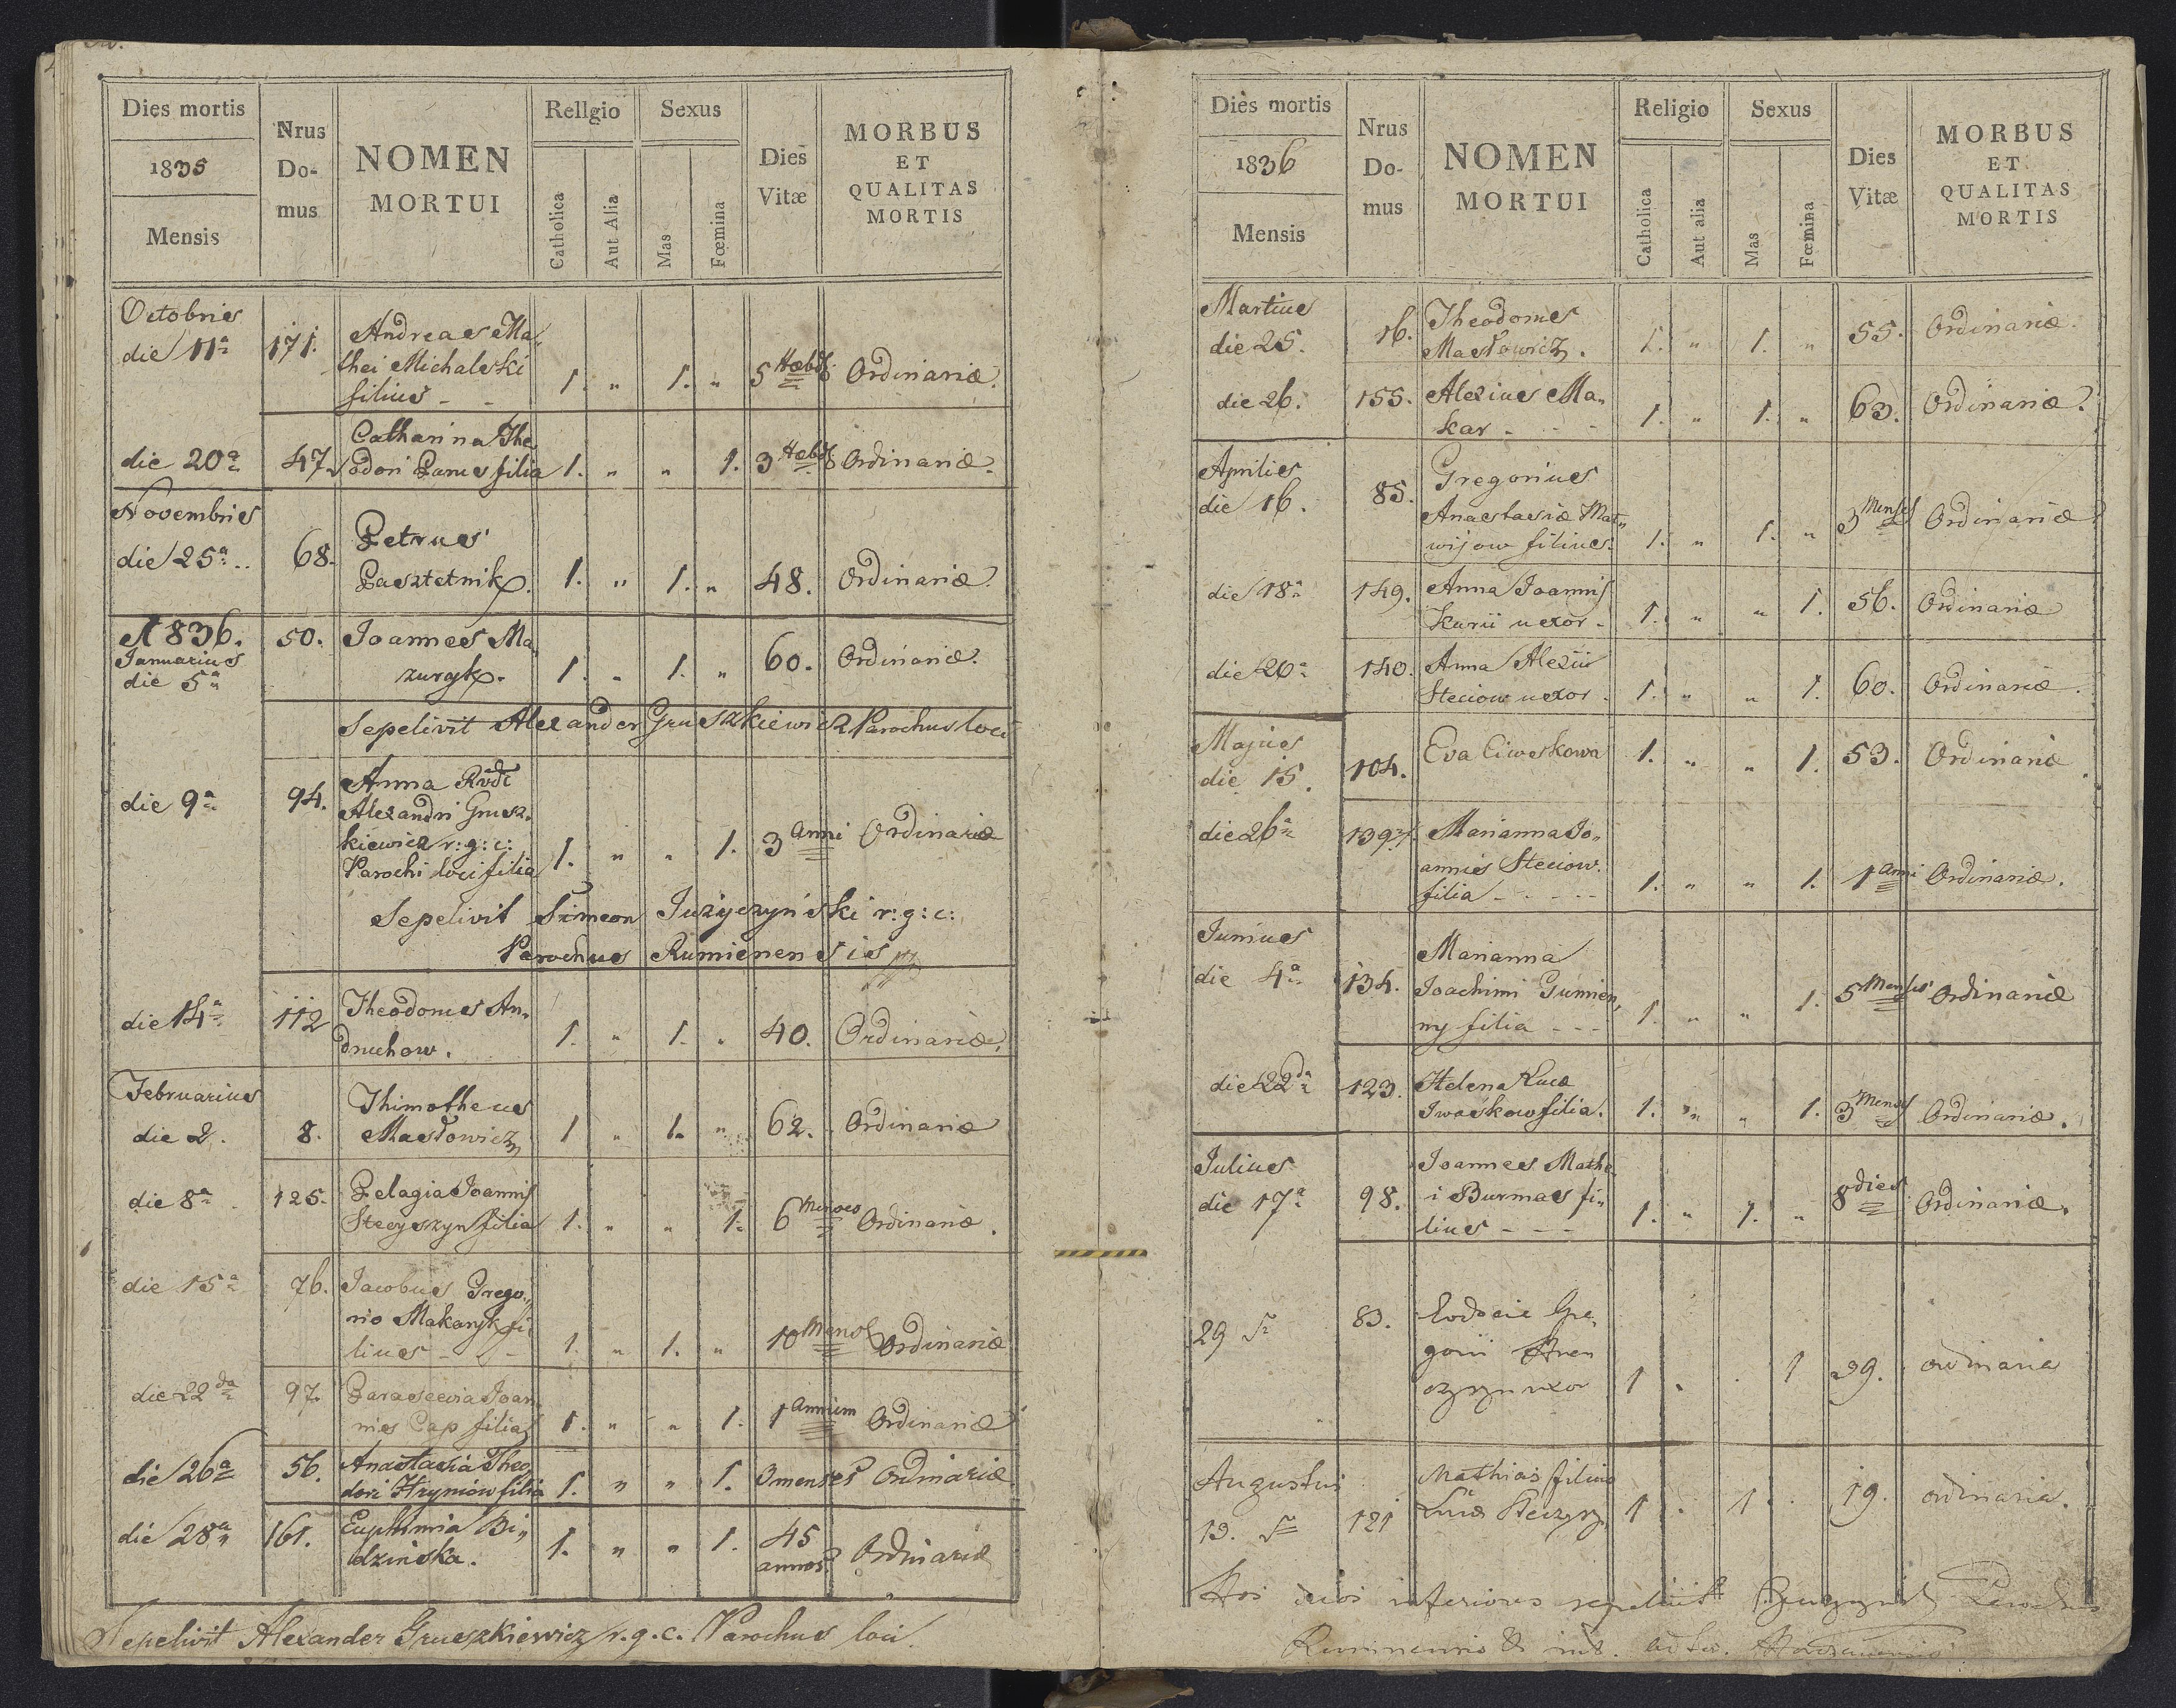 Dies mortis
1835
Mensis
Nrus
Do-
mus
NOMEN
MORTUI
Religio
Catholica
Aut Alia
Sexus
Mas
Fœmina
Dies
Vitæ
MORBUS
ET
QUALITAS
MORTIS
Octobris
die 11a 171. Andreas Ma-
thei Michalski
filius - - 1. " 1. " 5 Hebd: Ordinariæ.
die 20a 47. Catharina The
odori Panes filia 1. " " 1. 3 Hebd: Ordinariæ.
Novembris
die 25a .. 68. Petrus
Pasztetnik. 1. " 1. " 48. Ordinariæ.
A 836. 50. Joannes Ma
Januarius
die 5a zuryk. 1. " 1. " 60. Ordinariæ.
Sepelivit Alexander Gruszkiewicz Parochus loci
die 9a 94. Anna Rvdi
Alexandri Grusz-
kiewicz r: g: c:
Parochi loci filia 1. " " 1. 3 anni Ordinariæ
Sepelivit Simeon Juzyczyński r: g: c:
Parochus Rumienensis
die 14a 112 Theodorus An-
druchow. 1. " 1. " 40. Ordinariæ.
Februarius
die 2. 8. Thimotheus
Masłowicz 1 " 1. " 62. Ordinariæ
die 8a 125. Pelagia Joannis
Stecyszyn filia 1. " " 1. 6 Menses Ordinariæ.
die 15a 76. Jacobus Grego-
rio Makaryk fi
lius - - 1. " 1. " 10 Mens Ordinariæ
die 22da 97. Parascevia Joan
nis Cap filia 1. " " 1. 1 Annum Ordinariæ
die 26a 56. Anastasia Theo
dori Hryniow filia 1. " " 1. 3 menses Ordinariæ
die 28a 161. Euphimia Bi-
dzińska. 1. " " 1. 45
annos Ordinariæ
Sepelivit Alexander Gruszkiewicz r. g. c. Parochus loci.
Dies mortis
1836
Mensis
Nrus
Do-
mus
NOMEN
MORTUI
Religio
Catholica
Aut alia
Sexus
Mas
Fœmina
Dies
Vitæ
MORBUS
ET
QUALITAS
MORTIS
Martius
die 25. 16. Theodorus
Masłowicz. 1. " 1. " 55. Ordinariæ.
die 26. 155. Alexius Ma-
kar - - - 1. " 1. " 63. Ordinariæ.
Aprilies
die 16. 85. Gregorius
Anastasiæ Mat-
wijow filius. 1. " 1. " 3 Menses Ordinariæ
die 18a 149. Anna Joannis
Kurii uxor - 1. " " 1. 56. Ordinariæ
die 20a 140. Anna Alexii
Steciow uxor. 1. " " 1. 60. Ordinariæ.
Majus
die 15. 104. Eva Ciweskowa 1. " " 1. 53. Ordinariæ.
die 26a 139. Marianna Jo-
annis Steciow.
filia - - - - 1. " " 1. 1 anni Ordinariæ.
Junius
die 4a 134. Marianna
Joachimi Gumien-
ny filia - - - 1. " " 1. 5 Menses Ordinariæ
die 22da 123. Helena Lucæ
Iwaskow filia. 1. " " 1. 3 Mens Ordinariæ.
Julius
die 17a 98. Joannes Mathe-
i Burmas fi-
lius - - - 1. " 1. " 8 dies Ordinariæ.
29 83. Eodocie Gre-
gorii
uxor 1 . . 1 39. ordinaria
Augustus
13. 121 Mathias filius
Lucæ 1 . 1 . 19. ordinaria.
Hos duos inferiores sepelivit Parochus